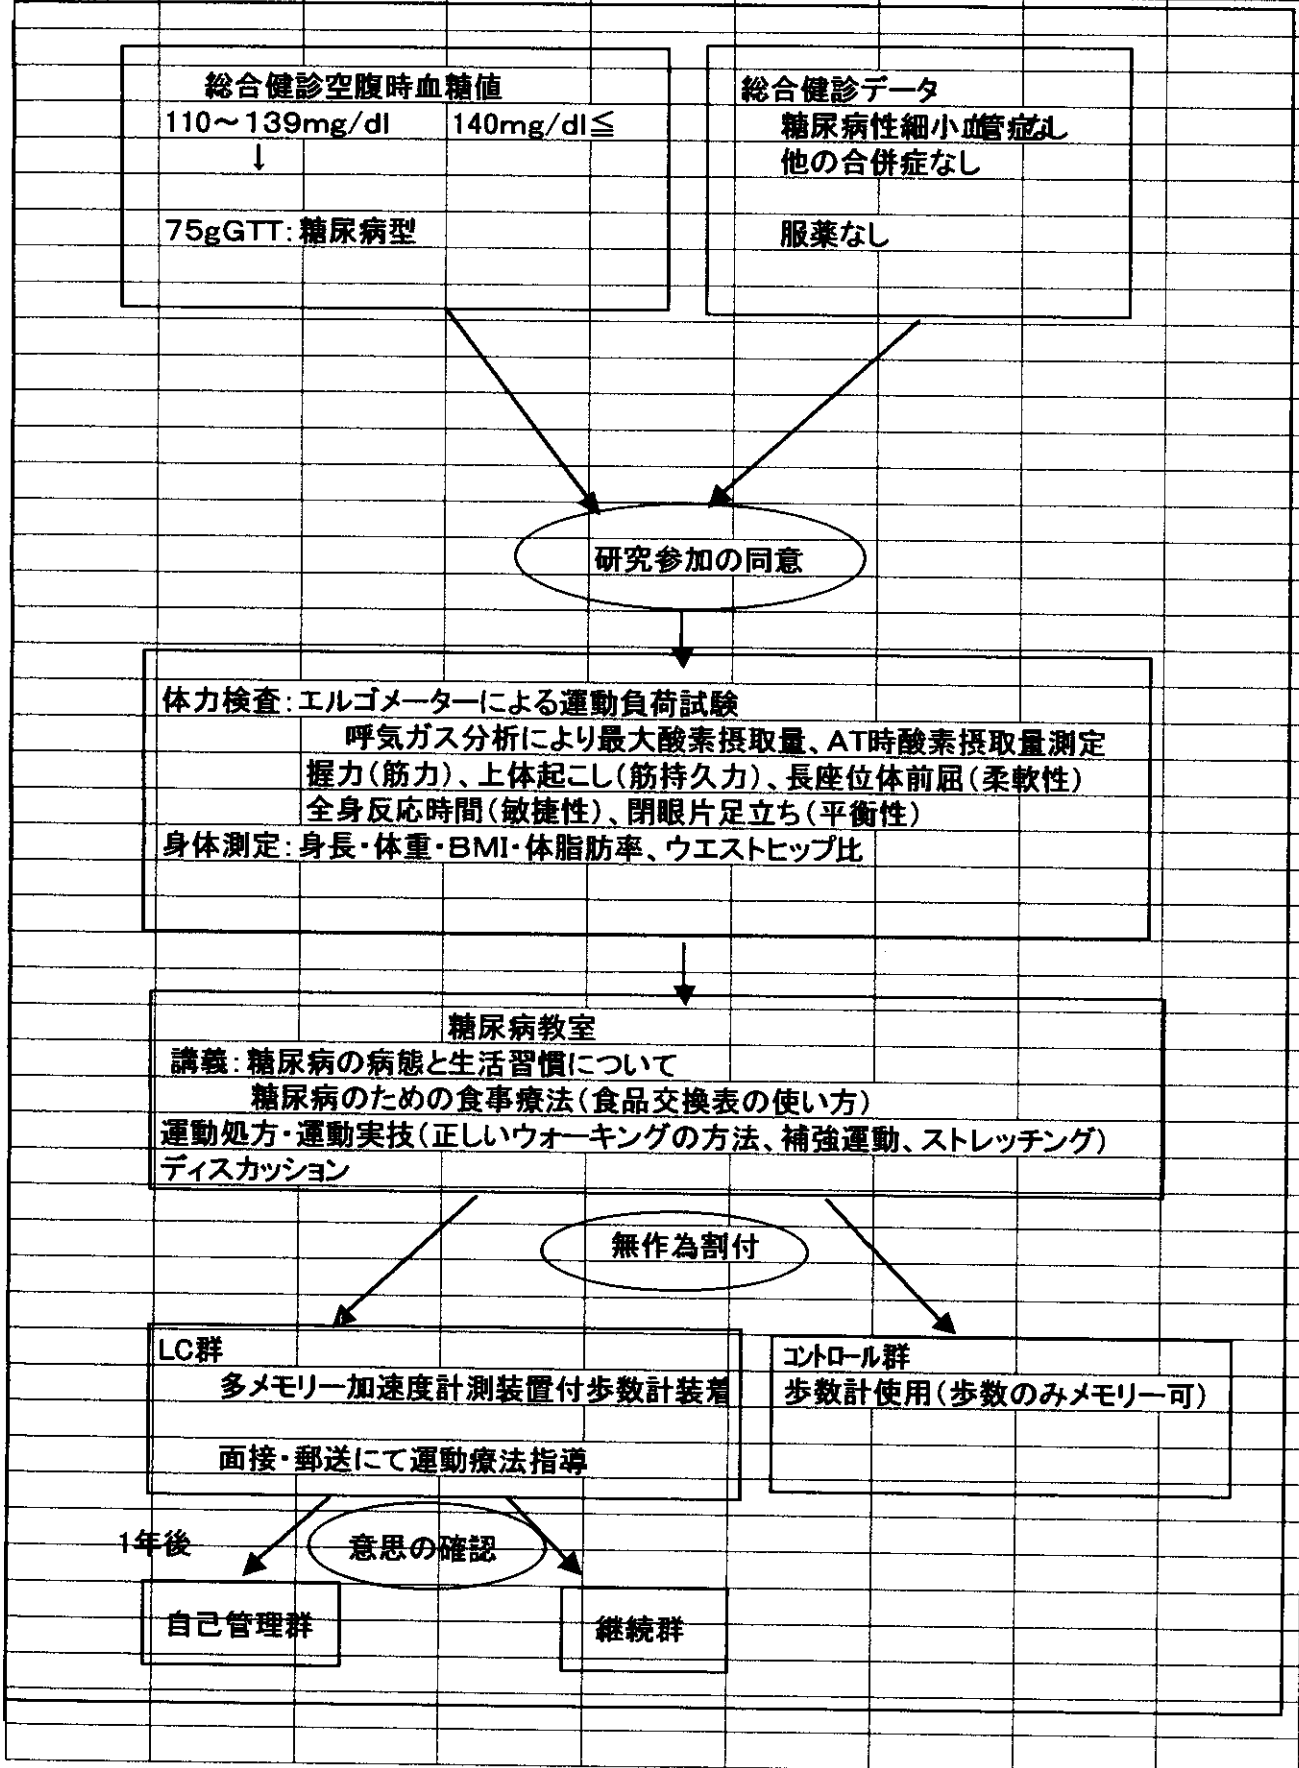 総合健診空腹時血糖値
110～139mg/dl 140mg/dl≦
↓
75gGTT:糖尿病型
総合健診データ
糖尿病性細小血管症なし
他の合併症なし
服薬なし
研究参加の同意
体力検査:エルゴメーターによる運動負荷試験
呼気ガス分析により最大酸素摂取量、AT時酸素摂取量測定
握力(筋力)、上体起こし(筋持久力)、長座位体前屈(柔軟性)
全身反応時間(敏捷性)、閉眼片足立ち(平衡性)
身体測定:身長・体重・BMI・体脂肪率、ウエストヒップ比
糖尿病教室
講義:糖尿病の病態と生活習慣について
糖尿病のための食事療法(食品交換表の使い方)
運動処方・運動実技(正しいウォーキングの方法、補強運動、ストレッチング)
ディスカッション
無作為割付
LC群
多メモリー加速度計測装置付歩数計装着
面接・郵送にて運動療法指導
コントロール群
歩数計使用(歩数のみメモリー可)
1年後
意思の確認
自己管理群
継続群